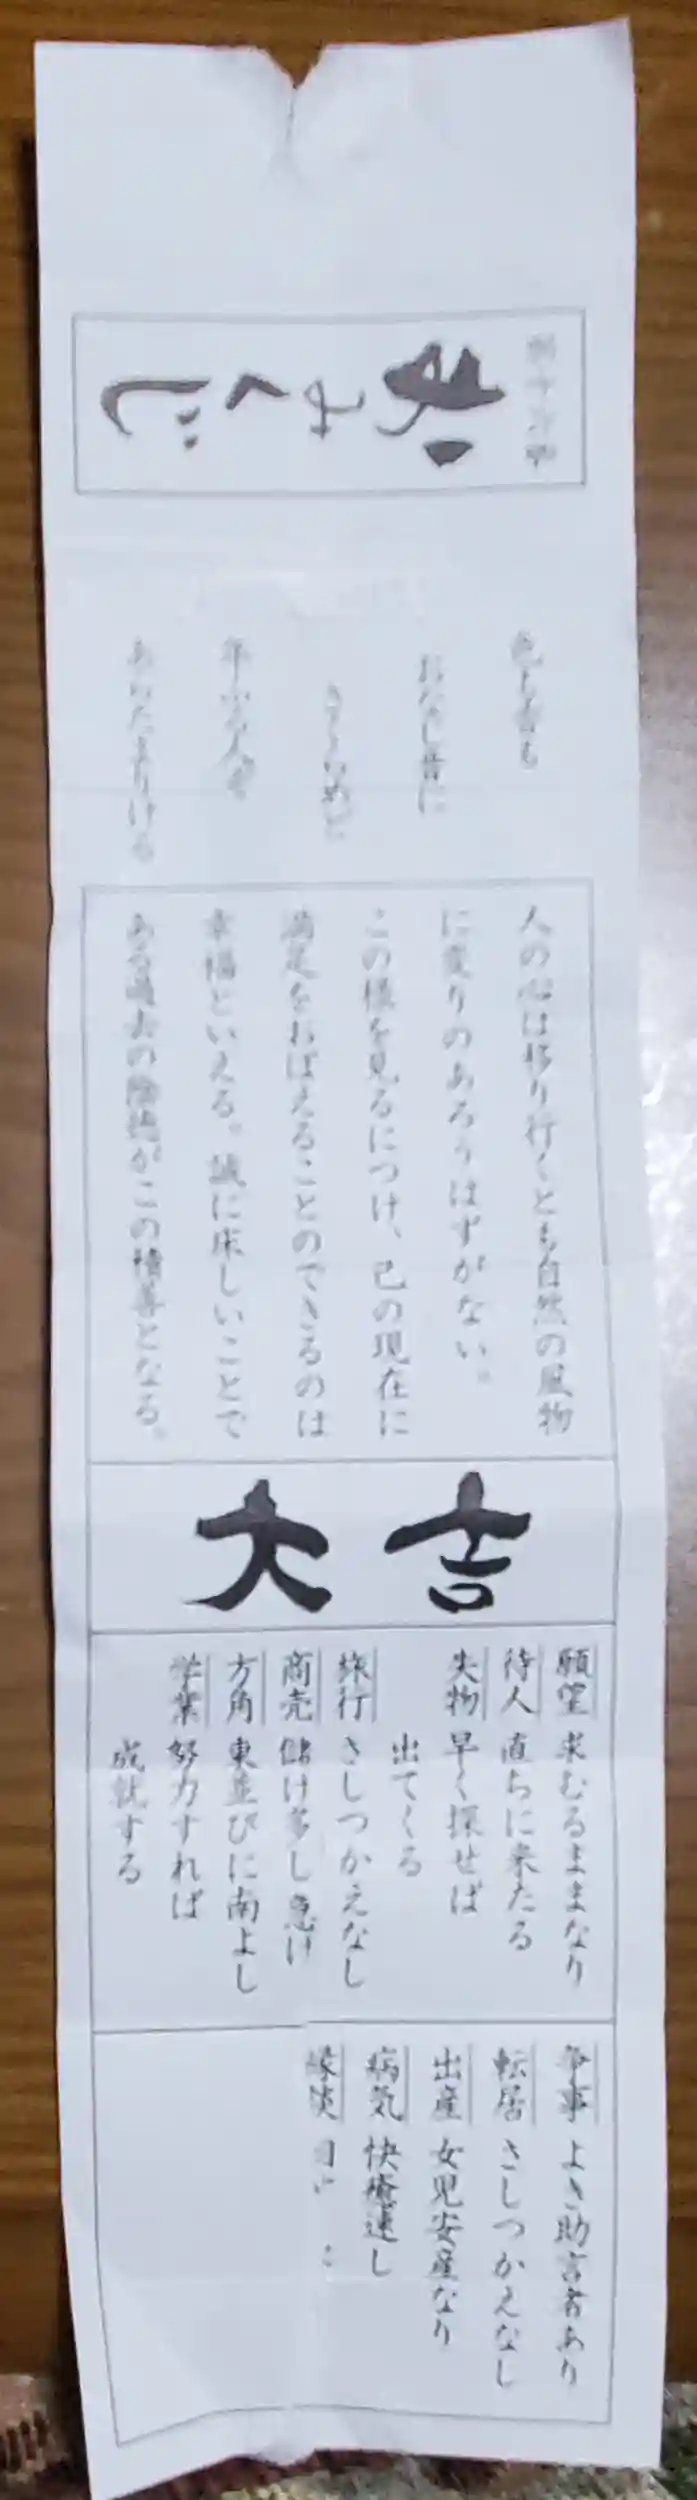 おみくじ
色も香も
おなじ昔に
さくらめど
年ふる人ぞ
あらたまりける
人の心は移り行くとも自然の風物
に変りのあろうはずがない。
この様を見るにつけ、己の現在に
満足をおぼえることのできるのは
幸福といえる。誠に床しいことで
ある過去の陰徳がこの積善となる。
大吉
願望 求むるままなり
待人 直ちに来たる
失物 早く探せば
出てくる
旅行 さしつかえなし
商売 儲け多し急げ
方角 東並びに南よし
学業 努力すれば
成就する
争事 よき助言者あり
転居 さしつかえなし
出産 女児安産なり
病気 快癒速し
縁談